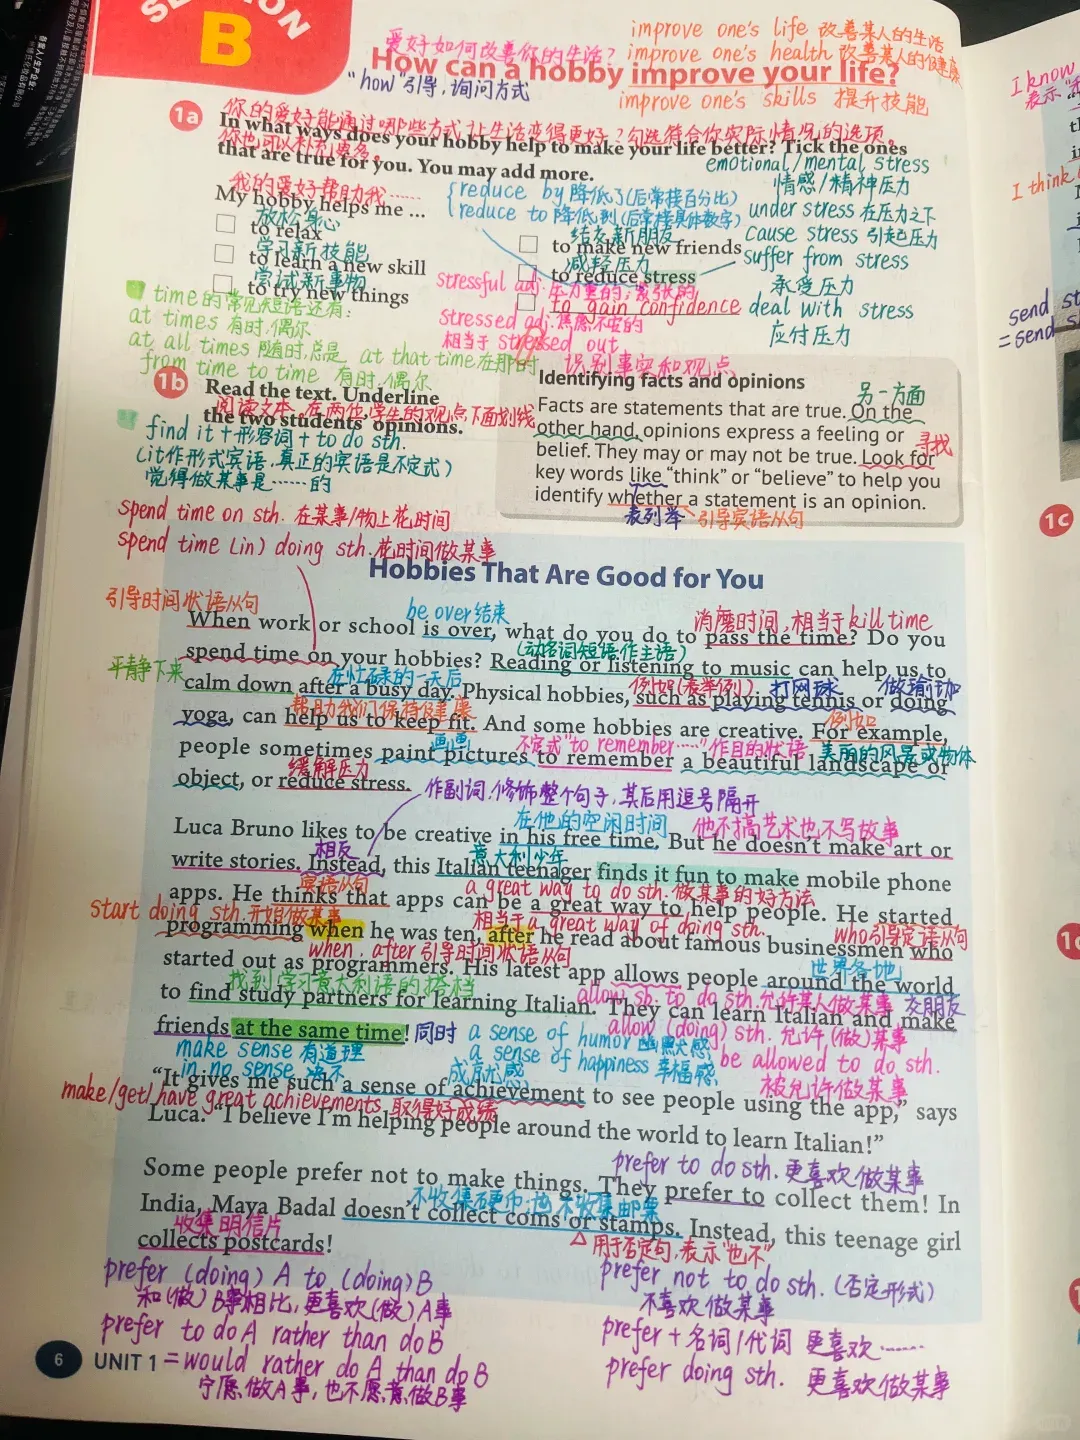 SECTION
B
improve one's life 改善某人的生活
爱好如何改善你的生活?
improve one's health 改善某人的健康
How can a hobby improve your life?
"how"引导,询问方式
improve one's skills 提升技能
1a
你的爱好能通过哪些方式让生活变得更好?勾选符合你实际情况的选项。
In what ways does your hobby help to make your life better? Tick the ones
你也可以补充更多。
that are true for you. You may add more.
emotional/mental stress
情感/精神压力
我的爱好帮助我……
My hobby helps me ...
reduce by 降低了(后常接百分比)
reduce to 降低到(后常接具体数字)
under stress 在压力之下
cause stress 引起压力
suffer from stress
承受压力
deal with stress
应付压力
放松身心
to relax
学习新技能
to learn a new skill
尝试新事物
to try new things
结交新朋友
to make new friends
减轻压力
to reduce stress
to gain confidence
stressful adj. 压力重的;紧张的
stressed adj. 焦虑不安的
相当于 stressed out
time的常见短语还有:
at times 有时,偶尔
at all times 随时,总是 at that time 在那时
from time to time 有时,偶尔
1b
Read the text. Underline
阅读文本,在两位学生的观点下面划线
the two students' opinions.
find it + 形容词 + to do sth.
(it作形式宾语,真正的宾语是不定式)
觉得做某事是……的
识别事实和观点
Identifying facts and opinions
另一方面
Facts are statements that are true. On the
other hand, opinions express a feeling or
寻找
belief. They may or may not be true. Look for
key words like "think" or "believe" to help you
identify whether a statement is an opinion.
表列举
引导宾语从句
spend time on sth. 在某事/物上花时间
spend time (in) doing sth. 花时间做某事
Hobbies That Are Good for You
引导时间状语从句
be over 结束
消磨时间,相当于 kill time
When work or school is over, what do you do to pass the time? Do you
(动名词短语作主语)
spend time on your hobbies? Reading or listening to music can help us to
平静下来
在忙碌的一天后
例如(表举例)
打网球
做瑜伽
calm down after a busy day. Physical hobbies, such as playing tennis or doing
帮助我们保持健康
例如
yoga, can help us to keep fit. And some hobbies are creative. For example,
画画
不定式"to remember……"作目的状语
美丽的风景或物体
people sometimes paint pictures to remember a beautiful landscape or
缓解压力
object, or reduce stress.
作副词,修饰整个句子,其后用逗号隔开
在他的空闲时间
他不搞艺术也不写故事
Luca Bruno likes to be creative in his free time. But he doesn't make art or
相反
意大利少年
write stories. Instead, this Italian teenager finds it fun to make mobile phone
宾语从句
a great way to do sth. 做某事的好方法
apps. He thinks that apps can be a great way to help people. He started
start doing sth. 开始做某事
相当于 a great way of doing sth.
who引导定语从句
programming when he was ten, after he read about famous businessmen who
when, after 引导时间状语从句
世界各地
started out as programmers. His latest app allows people around the world
找到学习意大利语的搭档
allow sb. to do sth. 允许某人做某事
交朋友
to find study partners for learning Italian. They can learn Italian and make
allow (doing) sth. 允许(做)某事
friends at the same time!
同时
a sense of humor 幽默感
make sense 有道理
a sense of happiness 幸福感
be allowed to do sth.
in no sense 决不
成就感
被允许做某事
"It gives me such a sense of achievement to see people using the app," says
make/get/have great achievements 取得好成绩
Luca. "I believe I'm helping people around the world to learn Italian!"
prefer to do sth. 更喜欢做某事
Some people prefer not to make things. They prefer to collect them! In
不收集硬币,也不收集邮票
India, Maya Badal doesn't collect coins or stamps. Instead, this teenage girl
收集明信片
用于否定句,表示"也不"
collects postcards!
prefer (doing) A to (doing) B
和(做)B事相比,更喜欢(做)A事
prefer to do A rather than do B
= would rather do A than do B
宁愿做A事,也不愿意做B事
prefer not to do sth. (否定形式)
不喜欢做某事
prefer + 名词/代词 更喜欢……
prefer doing sth. 更喜欢做某事
6
UNIT 1
I know
I think
send st
= send s
1c